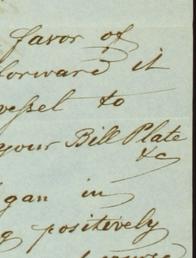 favor of
forward it
vessel to
your Bill Plate
&c
gan in
g positively